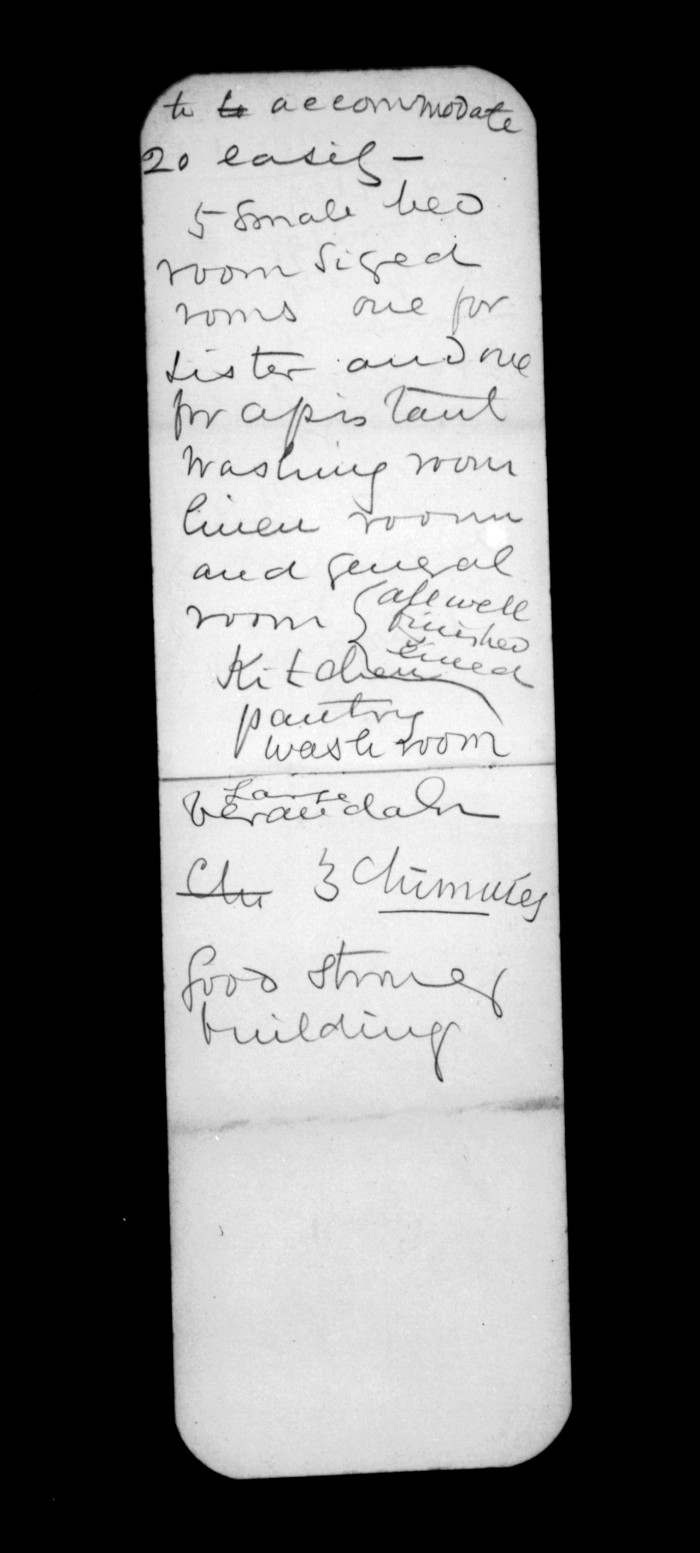 to to accommodate
20 easily —
5 small bed
room sized
roms one for
sister and one
for assistant
washing room
linen room
and general
room { all well
finished
lined
Kitchen
pantry
wash room
Large
verandah
Chi 3 Chimnies
Good strong
building